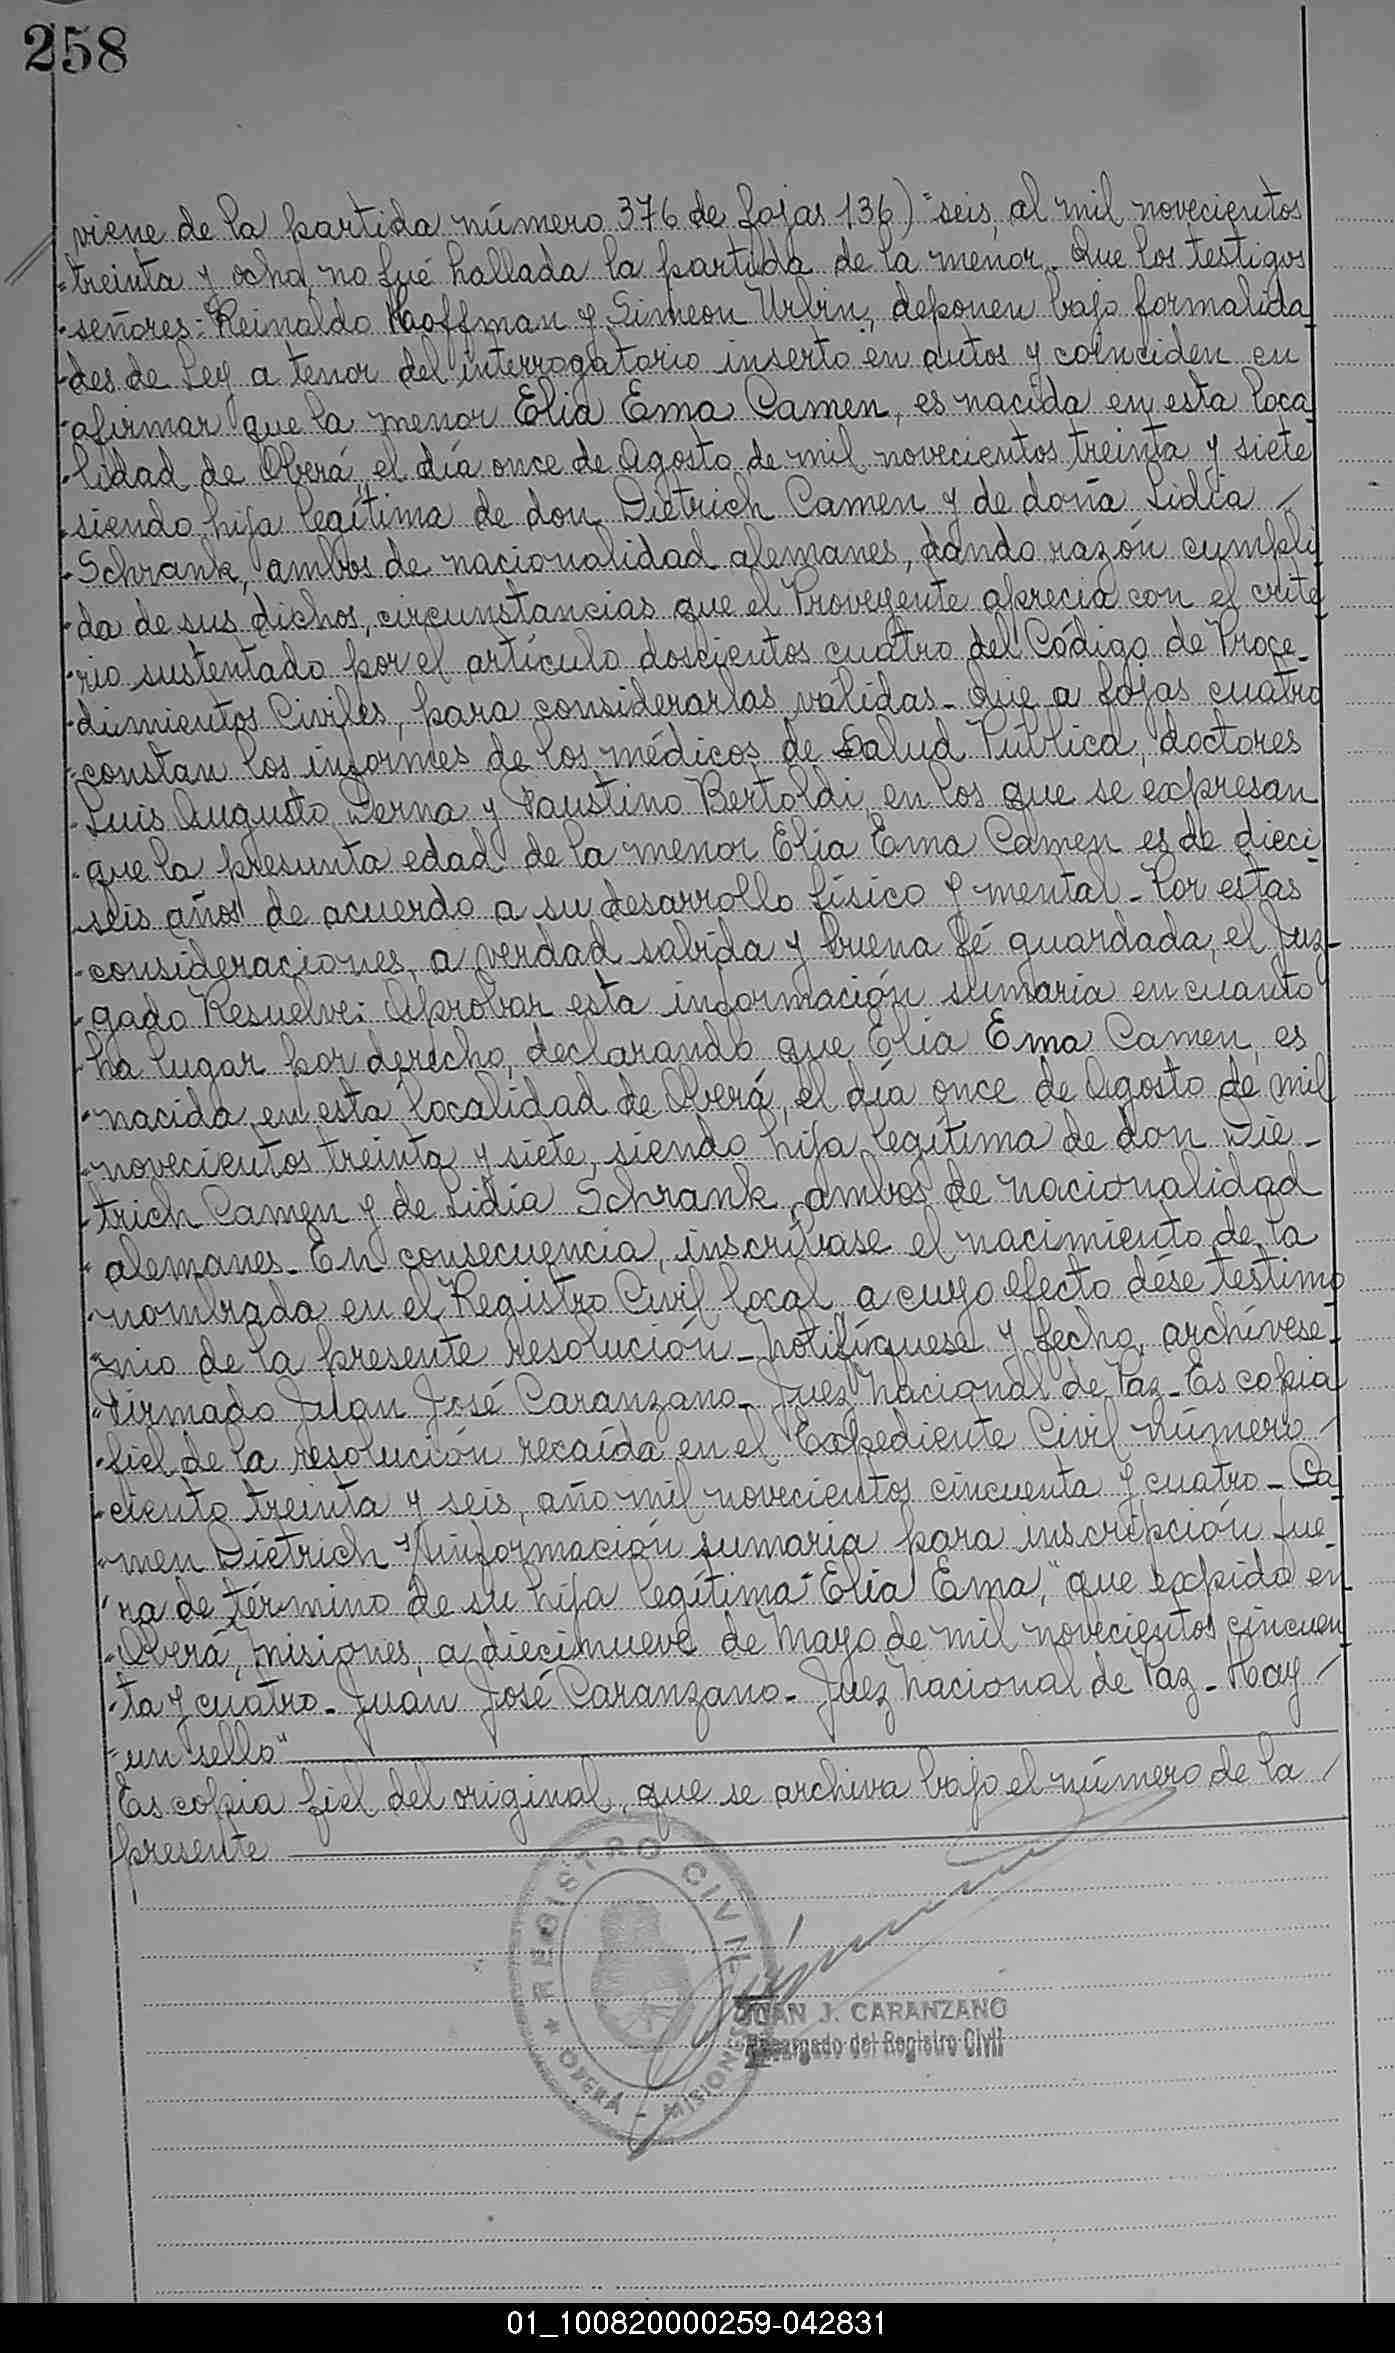 258
viene de la partida número 376 de fojas 136) "seis, al mil novecientos
"treinta y ocho, no fué hallada la partida de la menor. Que los testigos
"señores: Reinaldo Hooffman y Simeon Urbin, deponen bajo formalida
"des de Ley a tenor del interrogatorio inserto en autos y coinciden en
"afirmar que la menor Elia Ema Camen, es nacida en esta loca
"lidad de Oberá, el día once de Agosto de mil novecientos treinta y siete
"siendo hija legítima de don Dietrich Camen y de doña Lidia /
"Schrank, ambos de nacionalidad alemanes, dando razón cumpli
"da de sus dichos, circunstancias que el Proveyente aprecia con el crite
"rio sustentado por el artículo doscientos cuatro del Código de Proce-
"dimientos Civiles, para considerarlas válidas - Que a fojas cuatro
"constan los informes de los médicos de Salud Pública, doctores
"Luis Augusto Derna y Faustino Bertoldi, en los que se expresan
"que la presunta edad de la menor Elia Ema Camen es de dieci
"seis años de acuerdo a su desarrollo físico y mental - Por estas
"consideraciones, a verdad sabida y buena fé guardada, el Juz-
"gado Resuelve: Aprobar esta información sumaria en cuanto
"ha lugar por derecho, declarando que Elia Ema Camen, es
"nacida en esta localidad de Oberá, el día once de Agosto de mil
"novecientos treinta y siete, siendo hija legítima de don Die-
"trich Camen y de Lidia Schrank, ambos de nacionalidad
"alemanes - En consecuencia, inscríbase el nacimiento de la
"nombrada en el Registro Civil local, a cuyo efecto dése testimo
"nio de la presente resolución - Notifíquese y fecho, archívese -
"Firmado Juan José Caranzano - Juez Nacional de Paz - Es copia
"fiel de la resolución recaída en el Expediente Civil número /
"ciento treinta y seis, año mil novecientos cincuenta y cuatro - Ca
"men Dietrich s/información sumaria para inscripción fue
"ra de término de su hija legítima "Elia Ema," que expido en
"Oberá, Misiones, a diecinueve de Mayo de mil novecientos cincuen
"ta y cuatro - Juan José Caranzano - Juez Nacional de Paz - Hay /
"un sello"
Es copia fiel del original, que se archiva bajo el número de la /
presente
REGISTRO CIVIL
* OBERÁ - MISIONES
JUAN J. CARANZANO
Encargado del Registro Civil
01_100820000259-042831